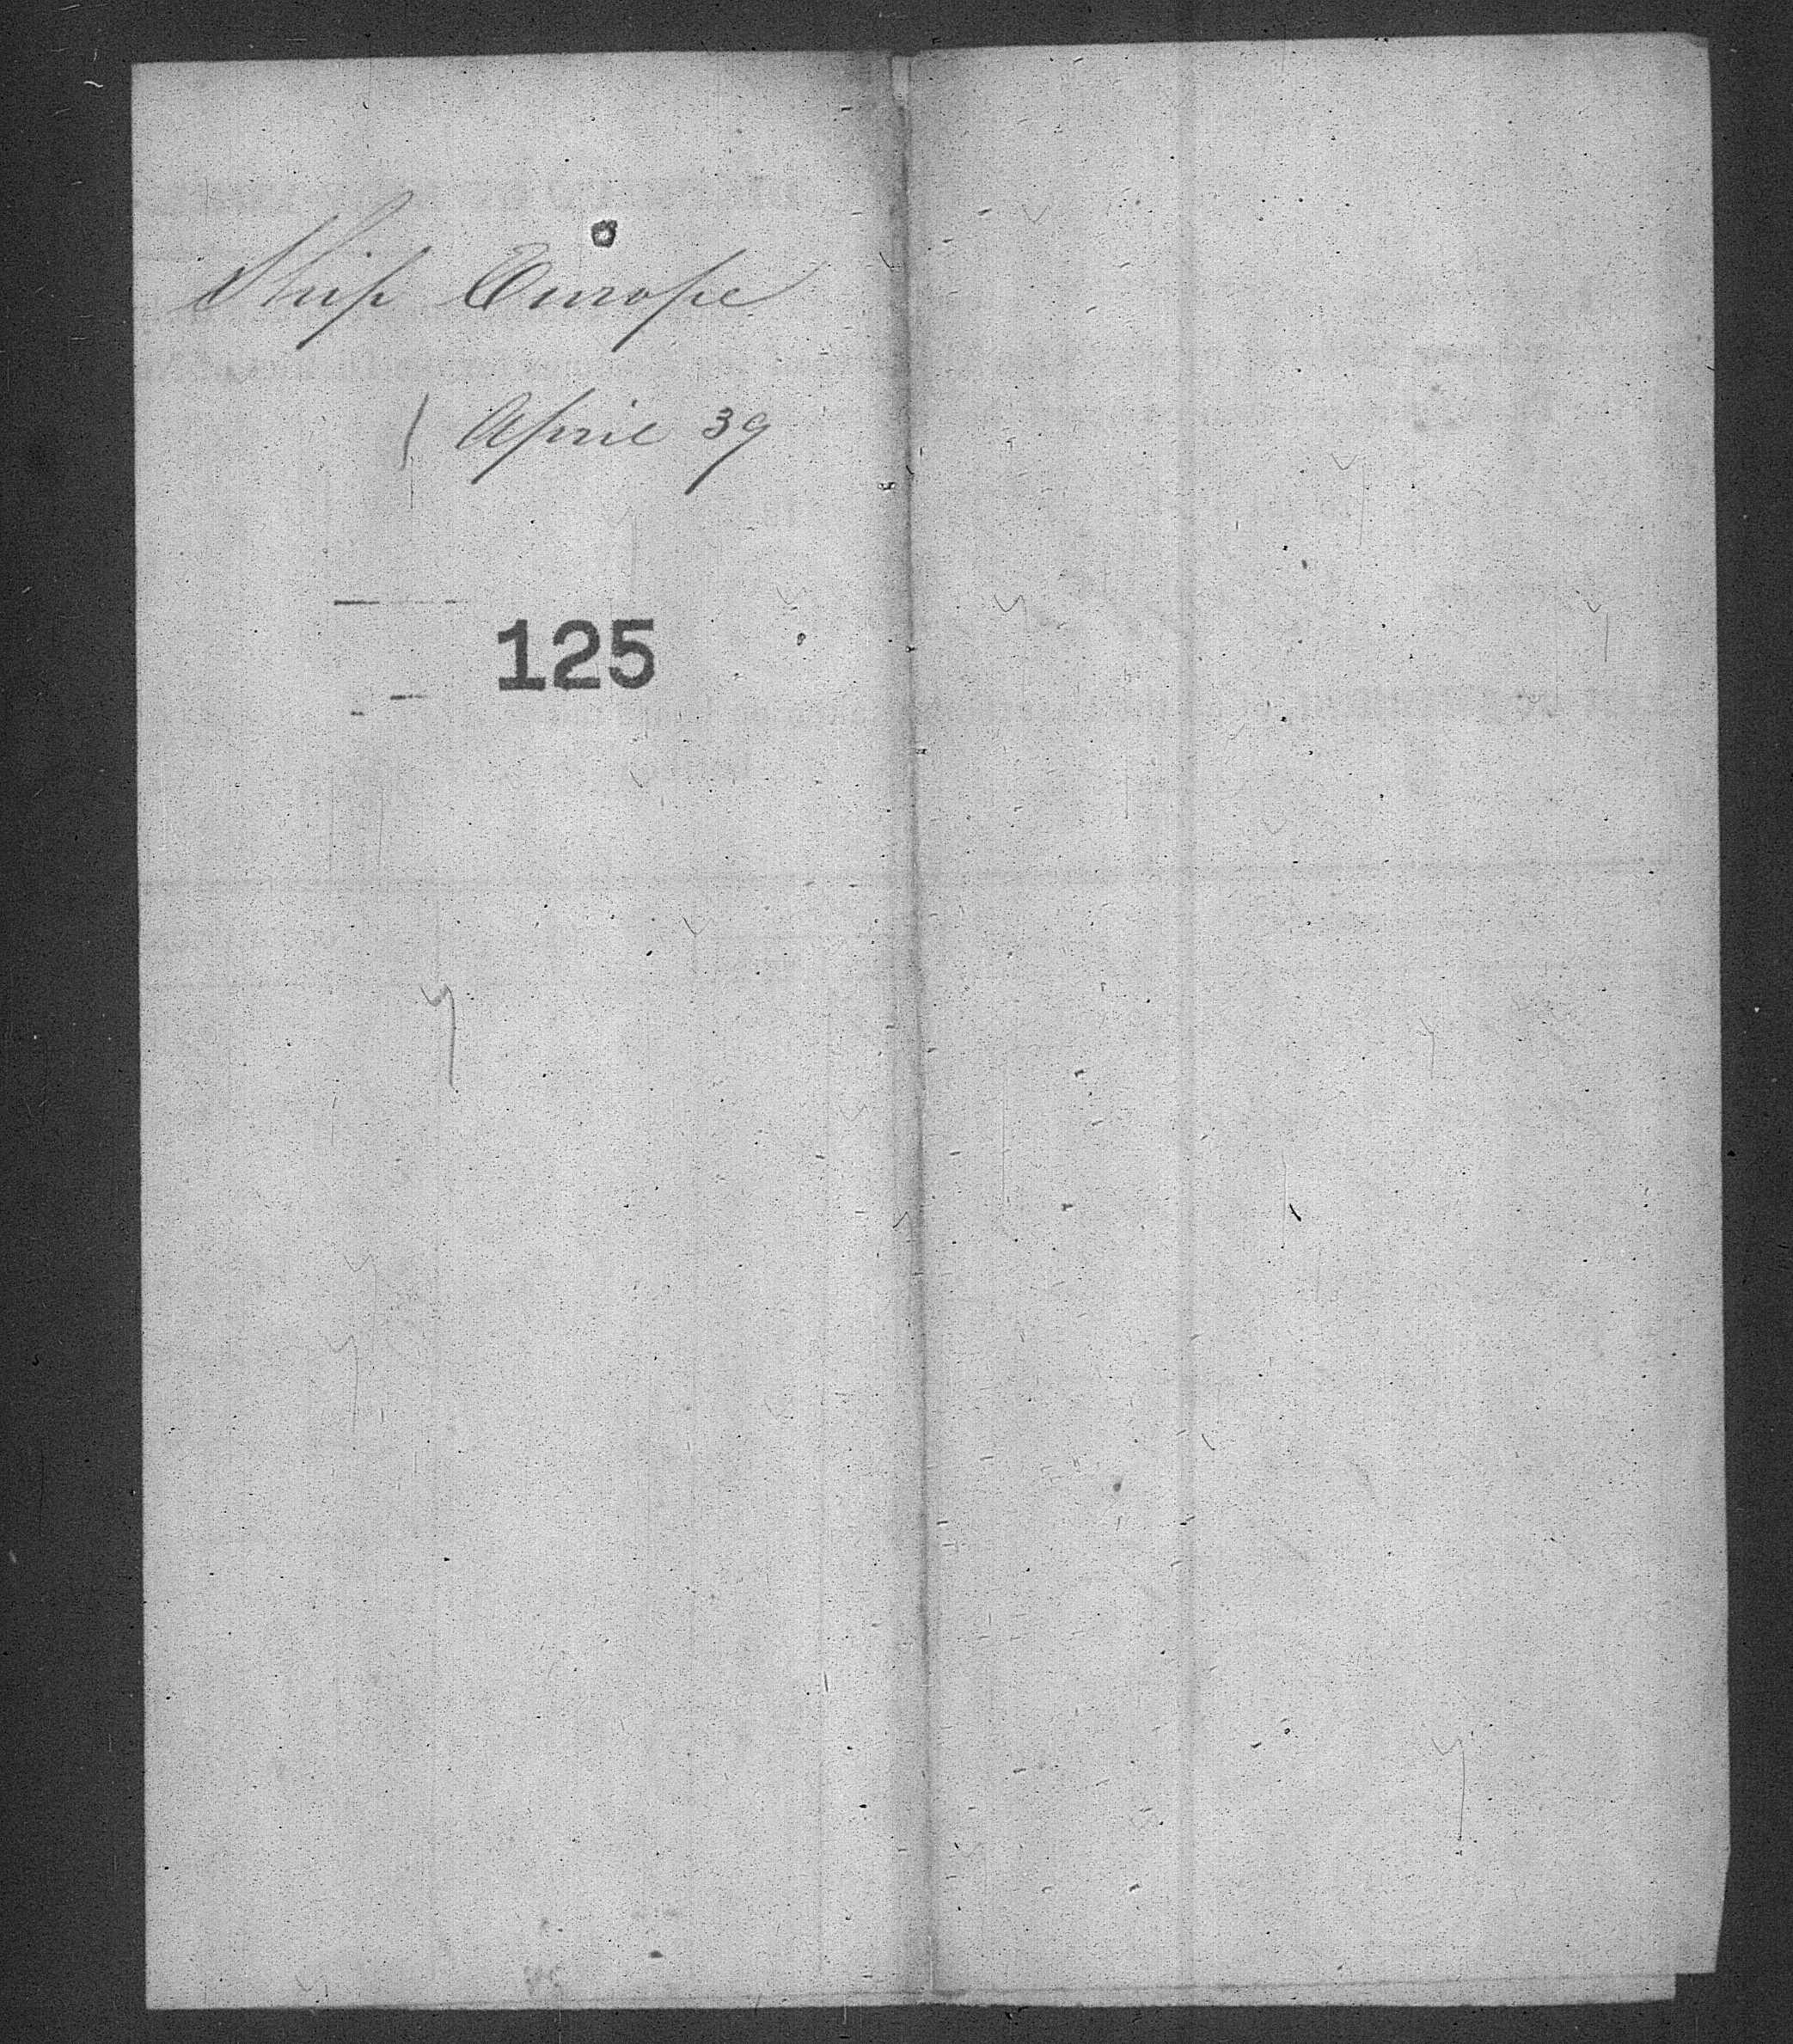 Ship Europe
April 39
125